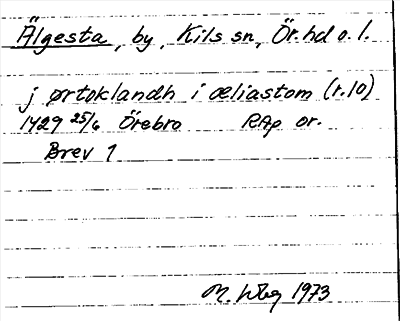 Älgesta, by, Kils sn, Ör. hd o. l.
j ørtoklandh i æliastom (r. 10)
1429 25/6 Örebro RAp or.
Brev 1
M. Wbg 1973